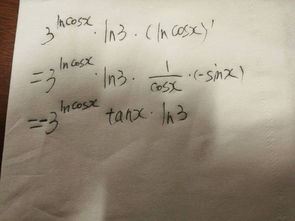 3^{ln cosx} · ln3 · (ln cosx)'
= 3^{ln cosx} · ln3 · \frac{1}{cosx} · (-sinx)
= -3^{ln cosx} tanx · ln3